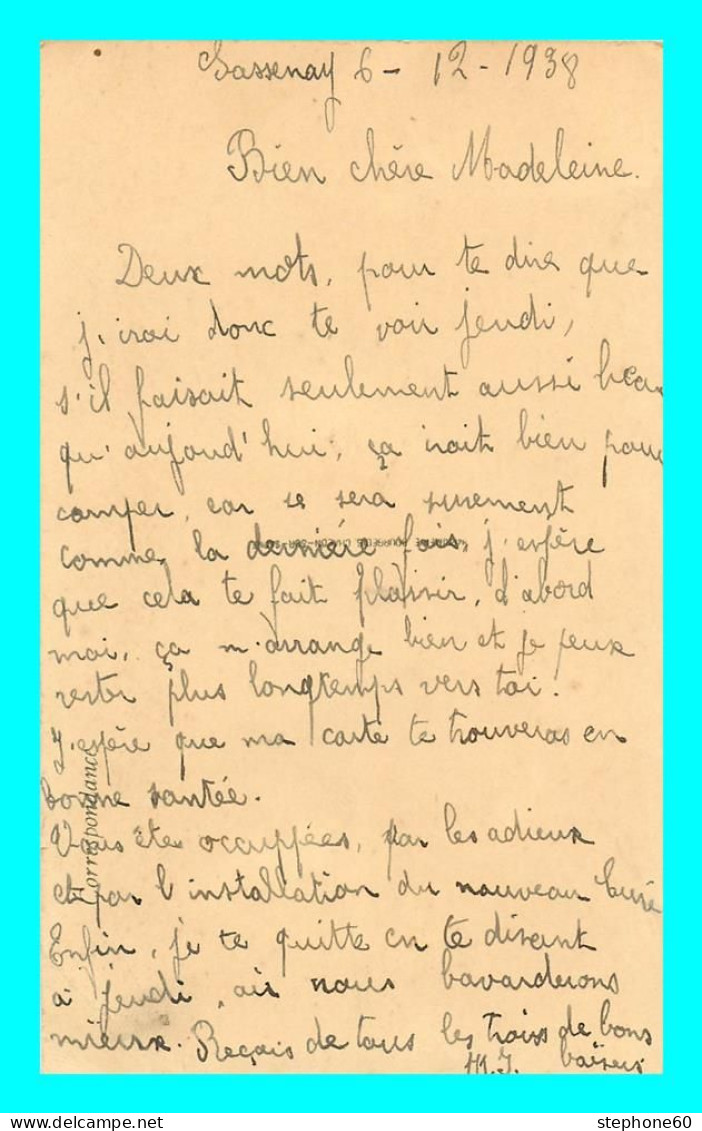 Sassenay 6 - 12 - 1938
Bien chère Madeleine.
Deux mots, pour te dire que
j'irai donc te voir jeudi,
s'il faisait seulement aussi beau
qu'aujourd'hui, ça irait bien pour
camper, car ce sera surement
comme la dernière fois, j'espère
que cela te fait plaisir, d'abord
moi, ça m'arrange bien et je peux
rester plus longtemps vers toi.
J'espère que ma carte te trouveras en
bonne santée.
Correspondance
Vous êtes occuppées, par les adieux
et par l'installation du nouveau Curé
Enfin, je te quitte en te disant
à jeudi, où nous bavarderons
mieux. Reçois de tous les trois de bons
M.J. baisers
stephone60